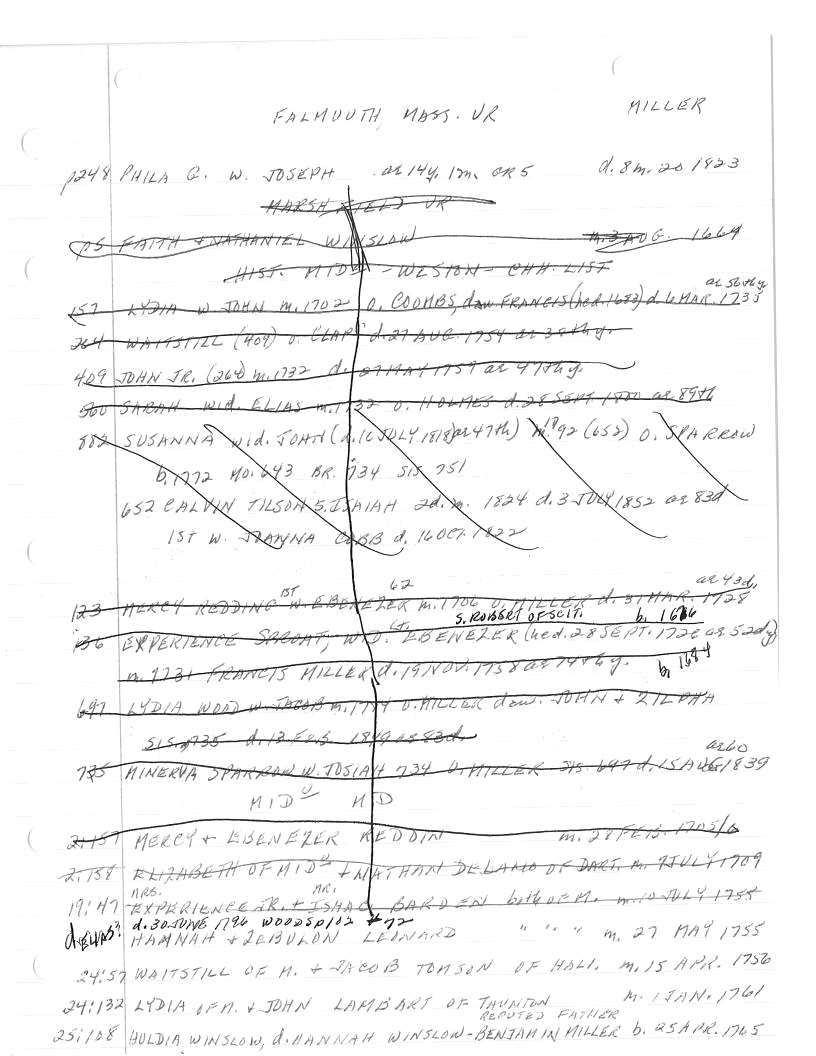 FALMOUTH MASS. VR MILLER
p248 PHILA G. W. JOSEPH ae 14y. 1m. GR5 d. 8m. 20 1823
MARSHFIELD VR
p5 FAITH + NATHANIEL WINSLOW m. 3 AUG. 1664
HIST. MID - WESTON - CHH. LIST
ae 56th y
157 LYDIA W JOHN m. 1702 O. COOMBS, daw FRANCIS (hed. 1683) d. 6 MAR. 1735
264 WAITSTILL (409) O. CLAP d. 27 AUG. 1754 ae 38th y.
409 JOHN JR. (264) m. 1732 d. 27 MAY 1759 ae 47th y.
560 SARAH wid. ELIAS m. 1732 O. HOLMES d. 28 SEPT. 1800 ae 89th
882 SUSANNA wid. JOHN (d. 16 JULY 1818 ae 47th) m. 18 92 (658) O. SPARROW
b. 1772 MO. 643 BR. 734 SIS 751
652 CALVIN TILSON S. ISAIAH 2d. m. 1824 d. 3 JULY 1852 ae 83d
1ST W. JOANNA COBB d. 16 OCT. 1822
1ST 62 ae 43d,
123 MERCY REDDING W. EBENEZER m. 1706 O. MILLER d. 31 MAR. 1728
S. ROBERT OF SCIT. b. 1676
136 EXPERIENCE SPROAT, WID. EBENEZER (hed. 28 SEPT. 1726 ae 52d y)
m. 1731 FRANCIS MILLER d. 19 NOV. 1758 ae 74th y. b. 1684
697 LYDIA WOOD W. JACOB m. 1784 O. MILLER daw. JOHN + ZILPHA
SIS. 735 d. 13 FEB. 1849 ae 83d.
ae 60
735 MINERVA SPARROW W. JOSIAH 734 O. MILLER SIS. 697 d. 15 AUG. 1839
MID MD
2:157 MERCY + EBENEZER REDDIN m. 28 FEB. 1705/6
2:158 ELIZABETH OF MID + NATHAN DELANO OF DART. m. 7 JULY 1709
MRS. MR.
19:47 EXPERIENCE JR. + ISAAC BARDEN both OF M. m. 10 JULY 1755
d. ELIAS? d. 30 JUNE 1796 WOODS p102 + 72
HANNAH + ZEBULON LEONARD " " " m. 27 MAY 1755
24:57 WAITSTILL OF M. + JACOB TOMSON OF HALI. m. 15 APR. 1756
24:132 LYDIA OF M. + JOHN LAMBART OF TAUNTON m. 1 JAN. 1761
REPUTED FATHER
25:108 HULDIA WINSLOW, d. HANNAH WINSLOW - BENJAMIN MILLER b. 25 APR. 1765